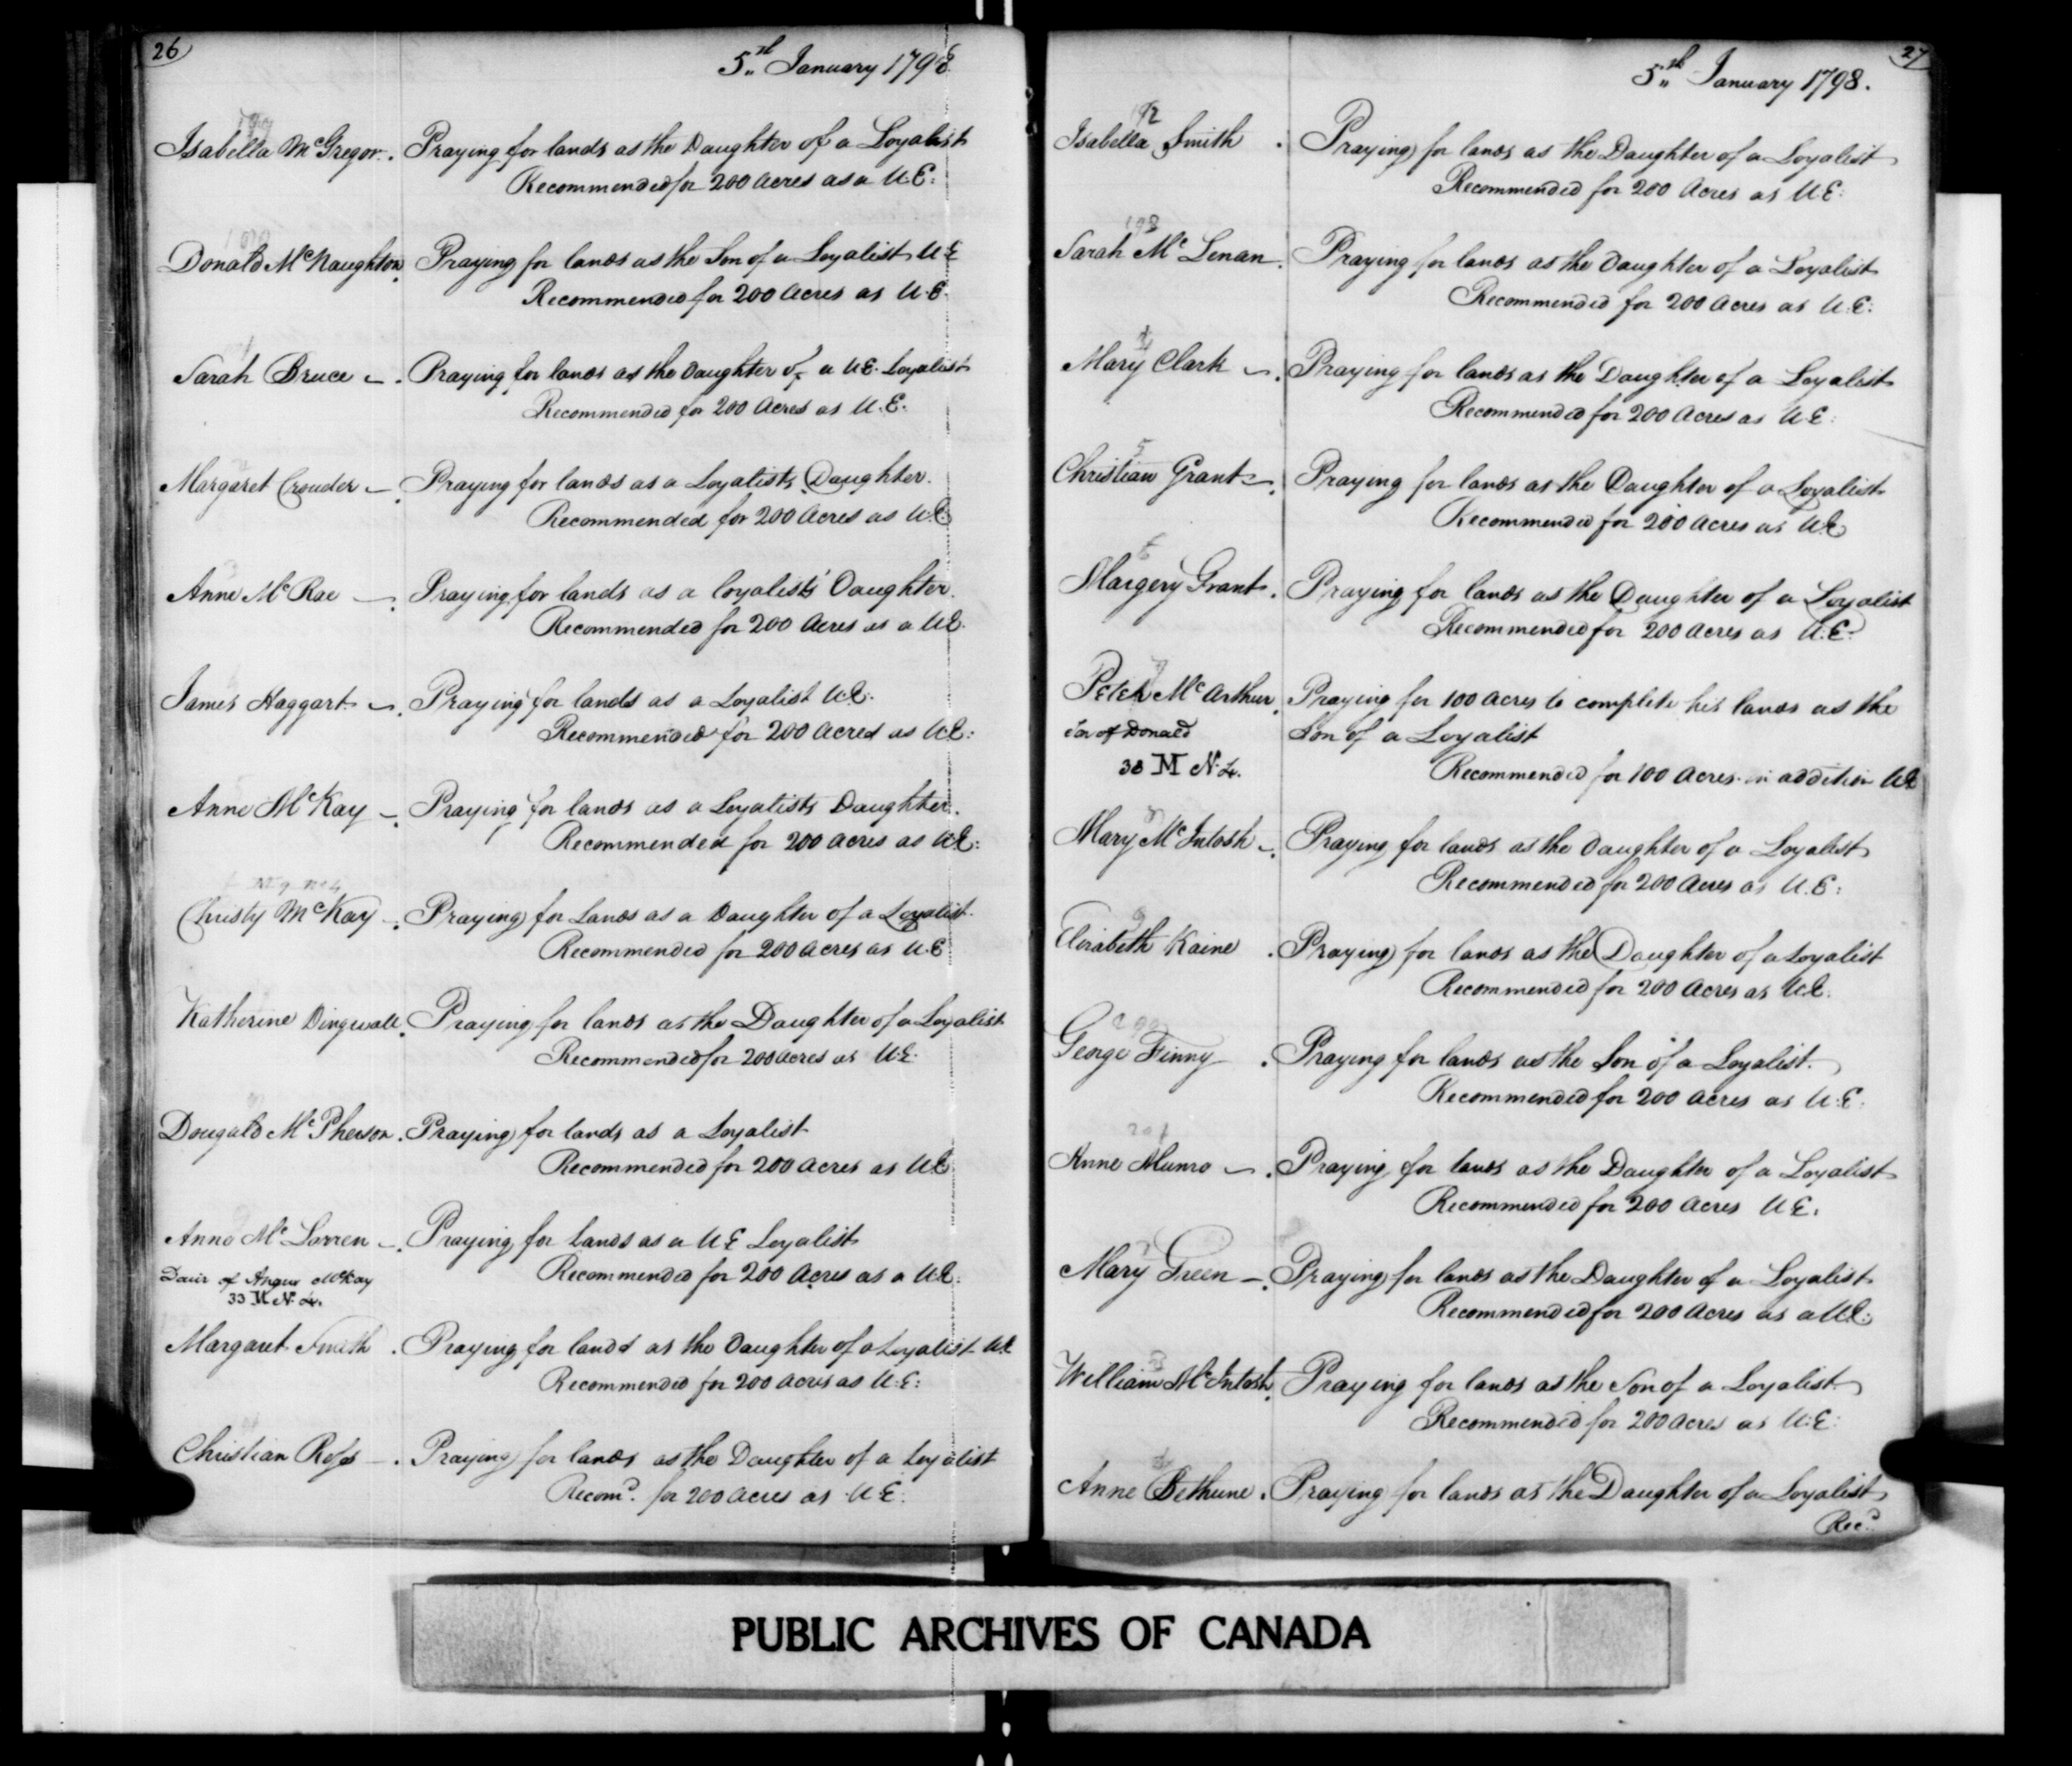 26
5th January 1798
Isabella McGregor. Praying for lands as the Daughter of a Loyalist
Recommended for 200 Acres as a U.E:
Donald McNaughton. Praying for lands as the Son of a Loyalist U E
Recommended for 200 Acres as U.E.
Sarah Bruce - . Praying for lands as the Daughter of a U.E. Loyalist
Recommended for 200 Acres as U.E.
Margaret Crouder - . Praying for lands as a Loyalists Daughter.
Recommended for 200 Acres as U.E.
Anne McRae - . Praying for lands as a loyalists' Daughter.
Recommended for 200 Acres as a U.E.
James Haggart - . Praying for lands as a Loyalist U.E.
Recommended for 200 Acres as U.E:
Anne McKay - . Praying for lands as a Loyalists Daughter.
Recommended for 200 Acres as U.E:
Christy McKay - . Praying for Lands as a Daughter of a Loyalist.
Recommended for 200 Acres as U.E
Katherine Dingwall. Praying for lands as the Daughter of a Loyalist
Recommended for 200 Acres as U.E.
Dougald McPherson. Praying for lands as a Loyalist
Recommended for 200 Acres as U.E
Anne McLorren - . Praying for Lands as a U E Loyalist
Recommended for 200 Acres as a U.E.
of Angus McKay
33 M No 4.
Margaret Smith . Praying for lands as the Daughter of a Loyalist U.E
Recommended for 200 Acres as U.E:
Christian Ross - . Praying for lands as the Daughter of a Loyalist
Recomd. for 200 Acres as U.E:
27
5th January 1798.
192
Isabella Smith . Praying for lands as the Daughter of a Loyalist
Recommended for 200 Acres as U.E:
193
Sarah McLenan. Praying for lands as the Daughter of a Loyalist
Recommended for 200 Acres as U.E:
4
Mary Clark - . Praying for lands as the Daughter of a Loyalist
Recommended for 200 Acres as U.E:
5
Christian Grant - . Praying for lands as the Daughter of a Loyalist
Recommended for 200 Acres as U.E
6
Margery Grant. Praying for lands as the Daughter of a Loyalist
Recommended for 200 Acres as U.E.
7
Peter McArthur. Praying for 100 Acres to complete his lands as the
Son of Donald Son of a Loyalist
33 M No 4. Recommended for 100 Acres in addition U.E
Mary McIntosh - . Praying for lands as the Daughter of a Loyalist
Recommended for 200 Acres as U.E:
9
Elizabeth Kaine . Praying for lands as the Daughter of a Loyalist
Recommended for 200 Acres as U.E.
200
George Finny . Praying for lands as the Son of a Loyalist.
Recommended for 200 Acres as U.E.
201
Anne Munro - . Praying for lands as the Daughter of a Loyalist
Recommended for 200 Acres U.E.
2
Mary Green - . Praying for lands as the Daughter of a Loyalist
Recommended for 200 Acres as a U.E.
3
William McIntosh. Praying for lands as the Son of a Loyalist
Recommended for 200 Acres as U.E:
4
Anne Bethune. Praying for lands as the Daughter of a Loyalist
Recd.
PUBLIC ARCHIVES OF CANADA